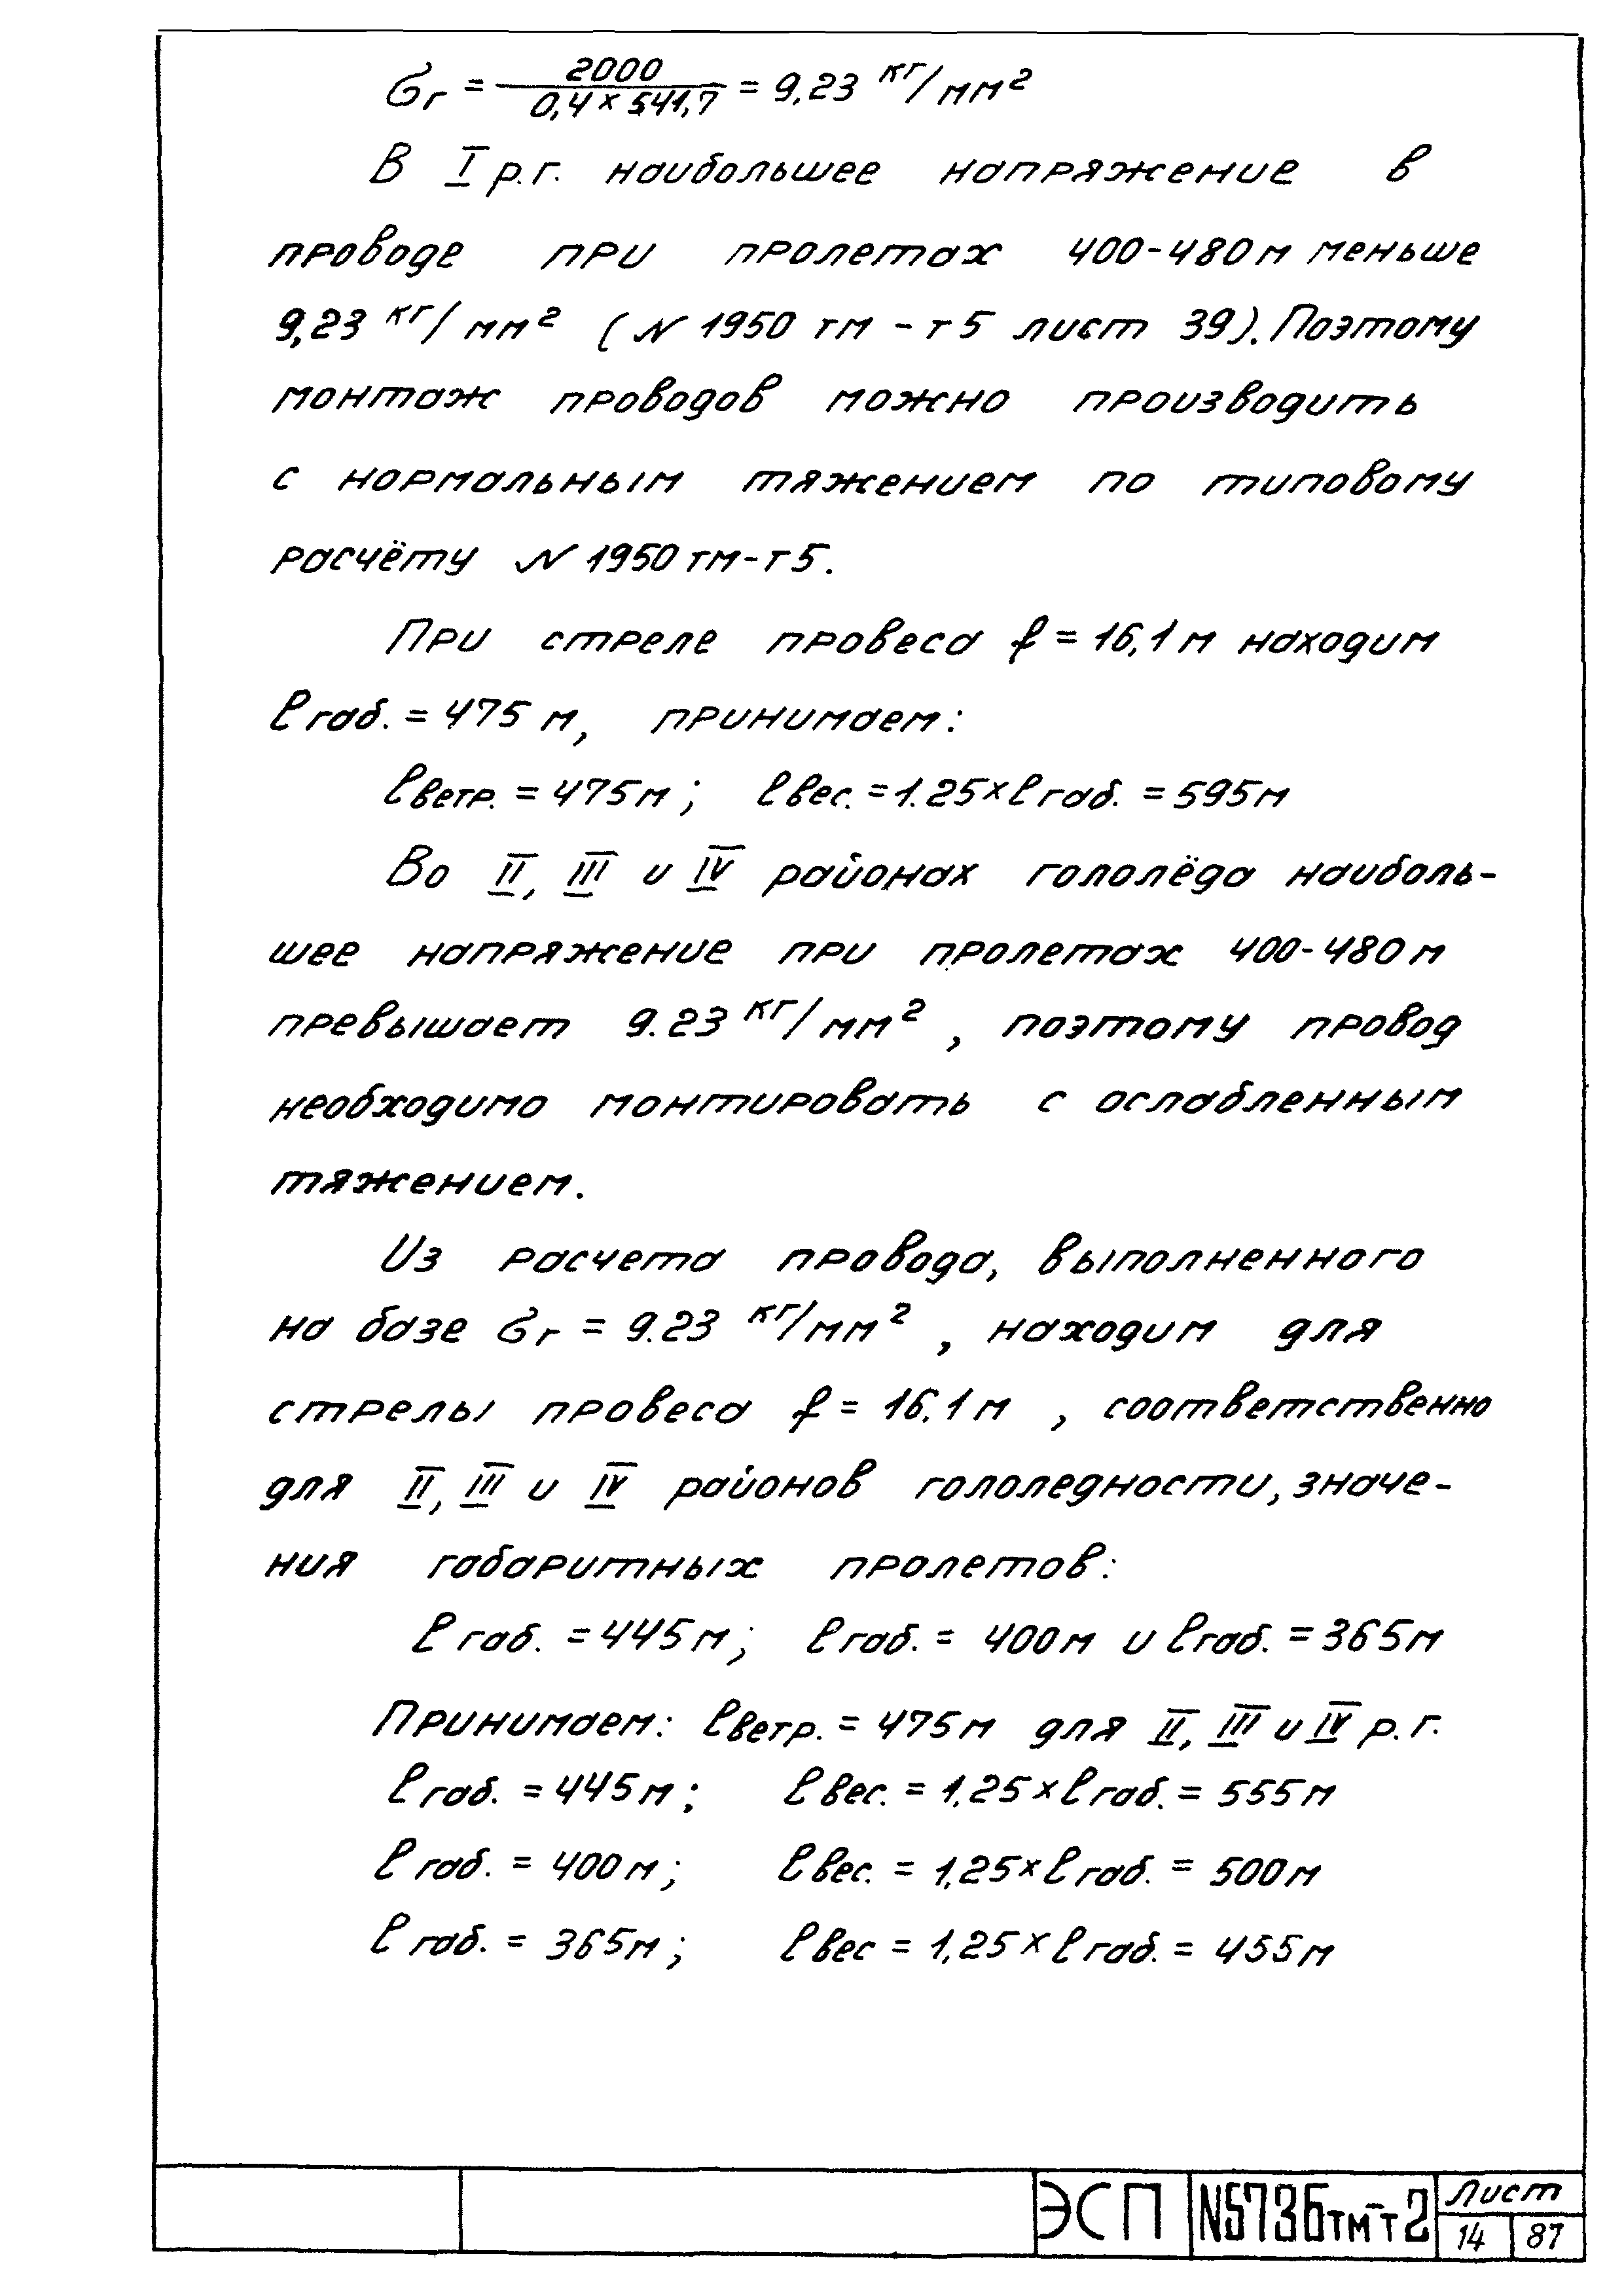 σг = 2000 / 0,4 × 541,7 = 9,23 кг/мм²
В I р.г. наибольшее напряжение в
проводе при пролетах 400-480м меньше
9,23 кг/мм² (N 1950 тм - т5 лист 39). Поэтому
монтаж проводов можно производить
с нормальным тяжением по типовому
расчёту N 1950 тм-т5.
При стреле провеса f = 16,1м находим
ℓ габ. = 475 м, принимаем:
ℓ ветр. = 475м; ℓ вес. = 1.25 × ℓ габ. = 595м
Во II, III и IV районах гололёда наиболь-
шее напряжение при пролетах 400-480м
превышает 9.23 кг/мм², поэтому провод
необходимо монтировать с ослабленным
тяжением.
Из расчета провода, выполненного
на базе σг = 9.23 кг/мм², находим для
стрелы провеса f = 16.1м, соответственно
для II, III и IV районов гололедности, значе-
ния габаритных пролетов:
ℓ габ. = 445м; ℓ габ. = 400м и ℓ габ. = 365м
Принимаем: ℓ ветр. = 475м для II, III и IV р.г.
ℓ габ. = 445м; ℓ вес. = 1,25 × ℓ габ. = 555м
ℓ габ. = 400м; ℓ вес. = 1,25 × ℓ габ. = 500м
ℓ габ. = 365м; ℓ вес = 1,25 × ℓ габ. = 455м
ЭСП N5736тм-т2 Лист
14 87